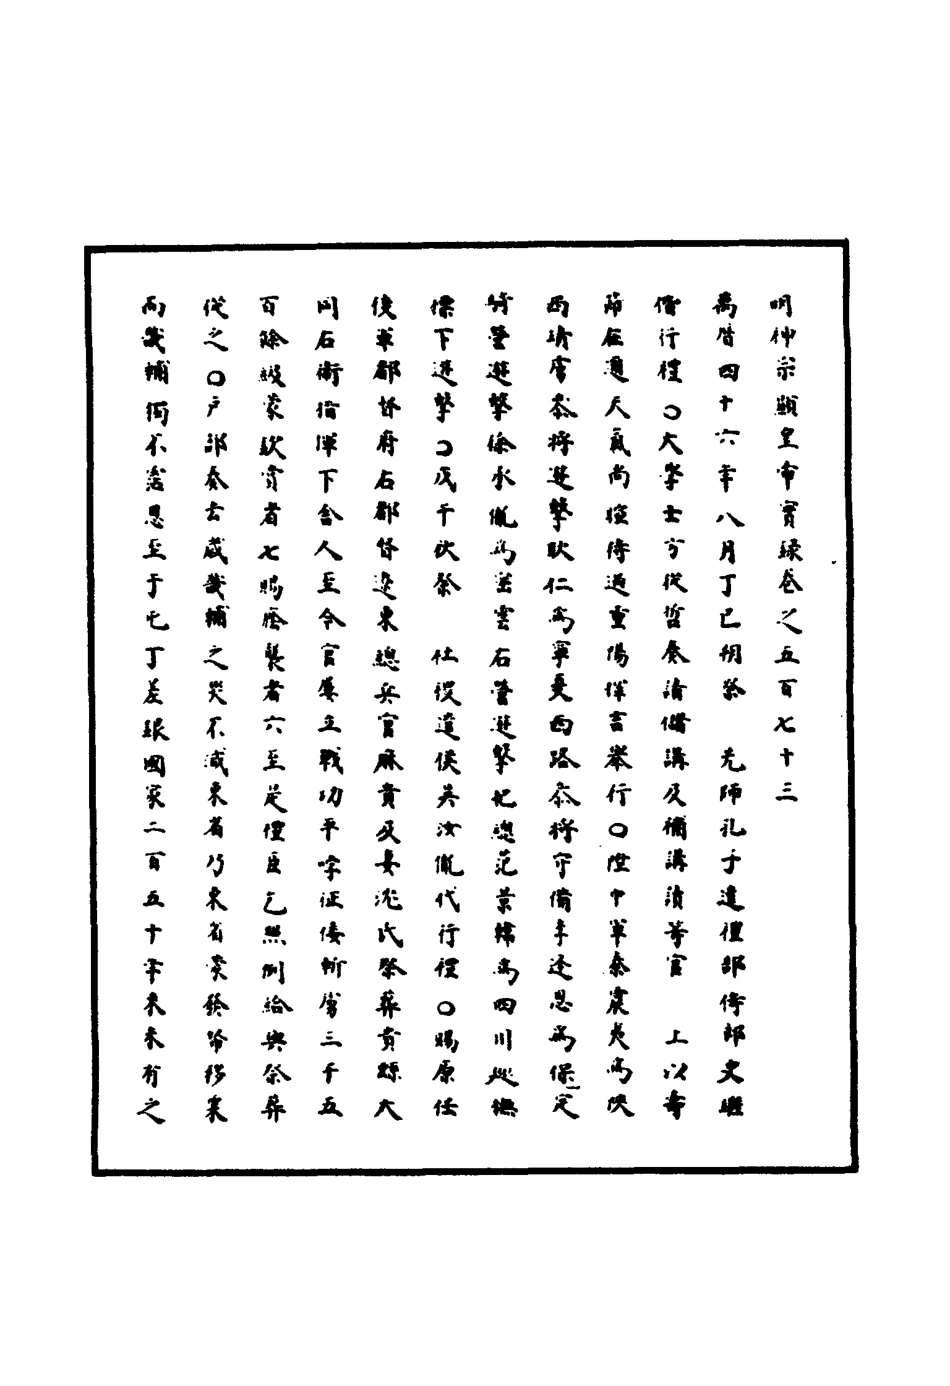 明神宗顯皇帝實錄卷之五百七十三
萬曆四十六年八月丁巳朔祭　先師孔子遣禮部侍郎史繼
偕行禮○大學士方從哲奏請備講及補講讀等官　上以壽
節在邇天氣尚炎待過重陽擇吉舉行○陞中軍秦震夷為陝
西靖虜參將遊擊耿仁為寧夏西路參將守備李逢恩為保定
骑營遊擊徐永胤為密雲石營遊擊把總范景韓為四川巡撫
標下遊擊○戊午秋祭　社稷遣侯吳汝胤代行禮○賜原任
後軍都督府右都督遼東總兵官麻貴及妻沈氏祭葬貴繇大
同右衛指揮下舍人至今官屢立戰功平哱征倭斬虜三千五
百餘級蒙欽賞者七賜蔭襲者六至是禮臣乞照例給與祭葬
從之○戶部奏去歲畿輔之災不減東省乃東省蒙發帑移粟
而畿輔獨不霑恩至于屯丁差銀國家二百五十年來未有之